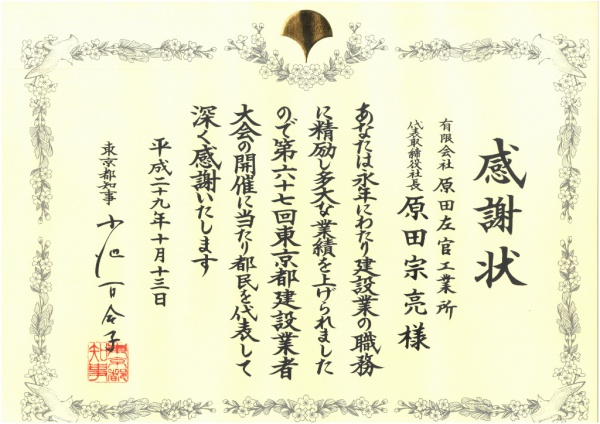 感謝状
有限会社 原田左官工業所
代表取締役社長 原田宗亮様
あなたは永年にわたり建設業の職務
に精励し多大な業績を上げられました
ので第六十七回東京都建設業者
大会の開催に当たり都民を代表して
深く感謝いたします
平成二十九年十月十三日
東京都知事 小池百合子
東京都知事